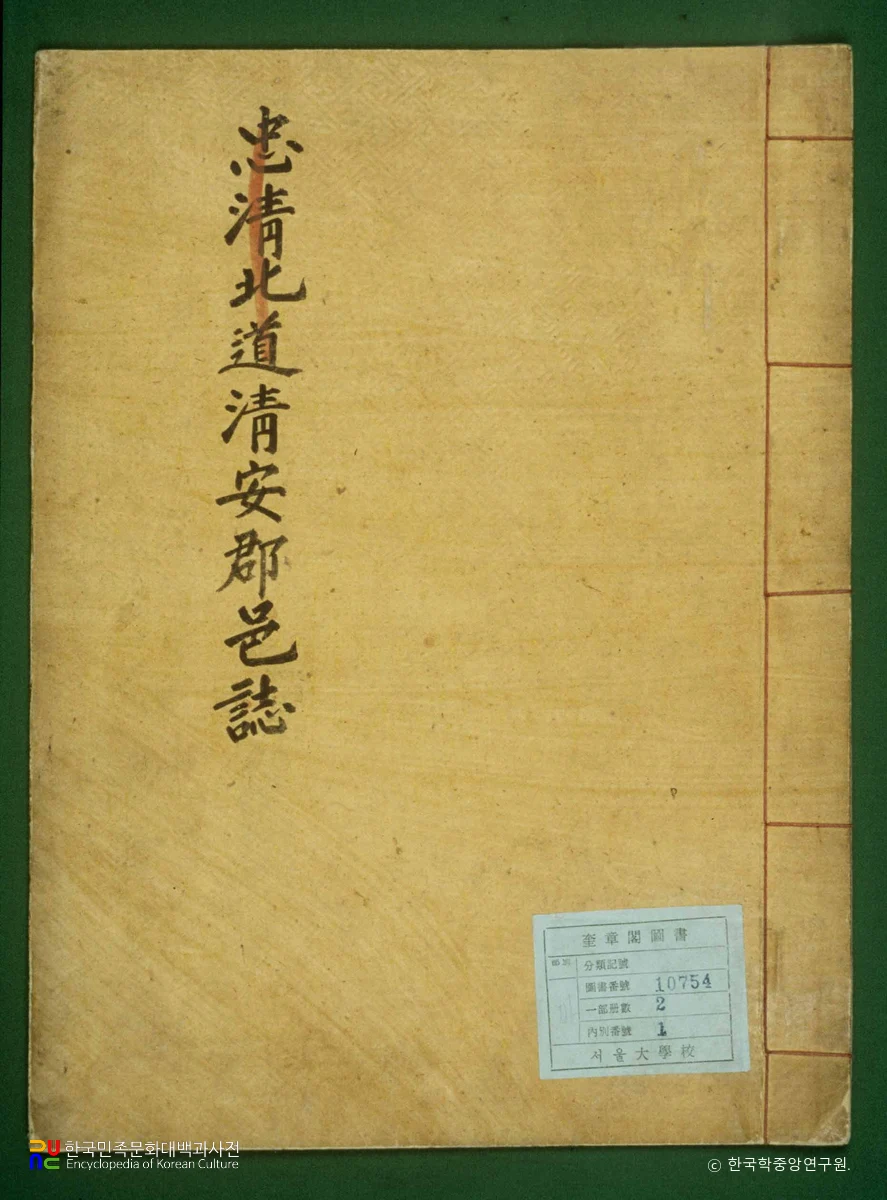 忠清北道清安郡邑誌
奎章閣圖書
分類記號
圖書番號 10754
一部冊數 2
內別番號 1
서울大學校
한국민족문화대백과사전
Encyclopedia of Korean Culture
© 한국학중앙연구원.